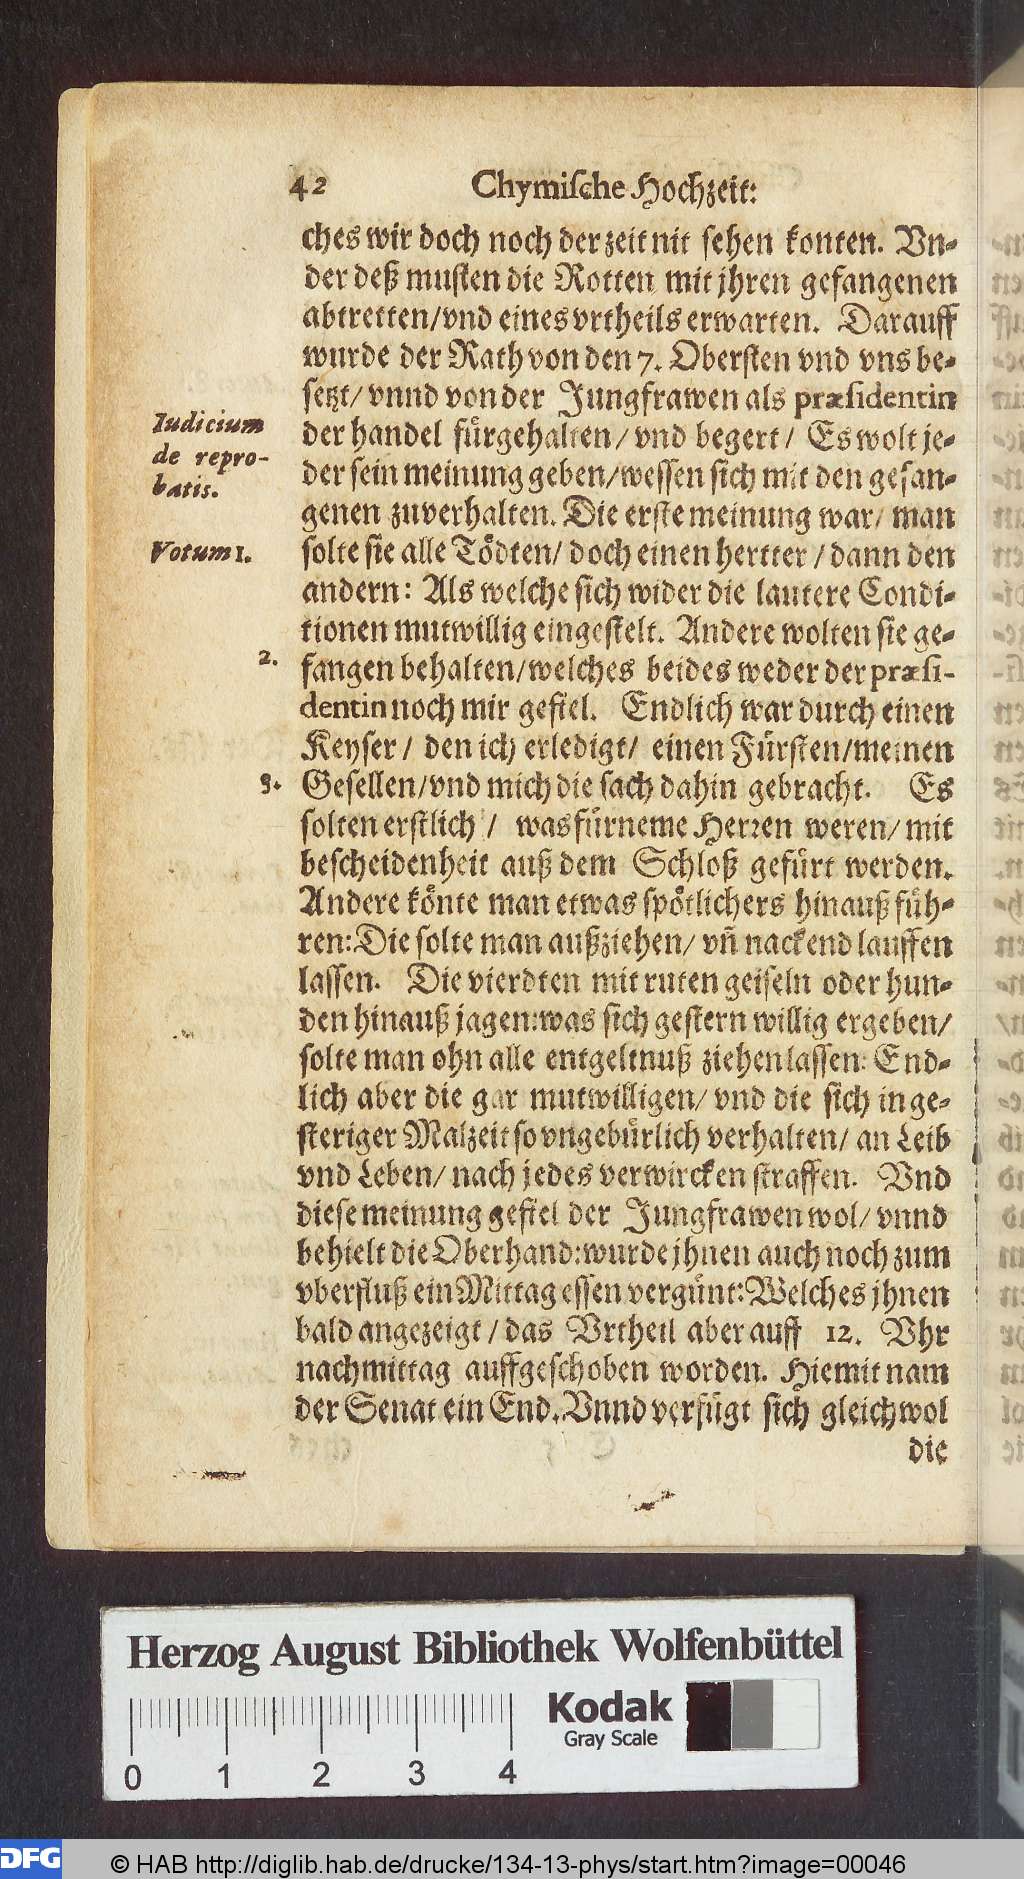 42 Chymiſche Hochzeit:
ches wir doch noch der zeit nit ſehen konten. Vn-
der deß muſten die Rotten mit jhren gefangenen
abtretten/vnd eines vrtheils erwarten. Darauff
wurde der Rath von den 7. Oberſten vnd vns be-
ſetzt/ vnnd von der Jungfrawen als præſidentin
der handel fürgehalten/ vnd begert/ Es wolt je-
der ſein meinung geben/weſſen ſich mit den gefan-
genen zuverhalten. Die erſte meinung war/ man
ſolte ſie alle Tödten/ doch einen hertter/ dann den
andern: Als welche ſich wider die lautere Condi-
tionen mutwillig eingeſtelt. Andere wolten ſie ge-
fangen behalten/welches beides weder der præſi-
dentin noch mir gefiel. Endlich war durch einen
Keyſer/ den ich erledigt/ einen Fürſten/meinen
Geſellen/vnd mich die ſach dahin gebracht. Es
ſolten erſtlich/ was fürneme Herren weren/ mit
beſcheidenheit auß dem Schloß gefürt werden.
Andere könte man etwas ſpötlichers hinauß füh-
ren: Die ſolte man außziehen/ vñ nackend lauffen
laſſen. Die vierdten mit ruten geiſeln oder hun-
den hinauß jagen: was ſich geſtern willig ergeben/
ſolte man ohn alle entgeltnuß ziehen laſſen: End-
lich aber die gar mutwilligen/ vnd die ſich in ge-
ſteriger Malzeit ſo vngebürlich verhalten/ an Leib
vnd Leben/ nach jedes verwircken ſtraffen. Vnd
dieſe meinung gefiel der Jungfrawen wol/ vnnd
behielt die Oberhand: wurde jhnen auch noch zum
vberfluß ein Mittag eſſen vergünt: Welches jhnen
bald angezeigt/ das Vrtheil aber auff 12. Vhr
nachmittag auffgeſchoben worden. Hiemit nam
der Senat ein End. Vnnd verfügt ſich gleichwol
die
Iudicium
de repro-
batis.
Votum 1.
2.
3.
Herzog August Bibliothek Wolfenbüttel
Kodak
Gray Scale
0 1 2 3 4
DFG © HAB http://diglib.hab.de/drucke/134-13-phys/start.htm?image=00046